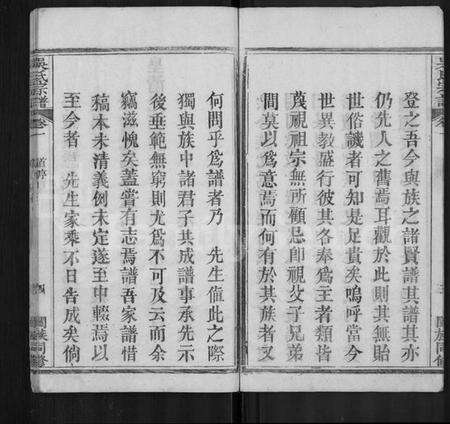 登之吾今與族之諸賢譜其譜其亦
仍先人之舊焉耳觀於此則其無貽
世俗譏者可知是足貴矣嗚呼當今
世異教盛行彼其各奉為王者類皆
蔑視祖宗無所顧忌卽視父子兄弟
間莫以為意焉而何有於其族者又
何問乎為譜者乃　先生值此之際
獨與族中諸君子其成譜事承先示
後垂範無窮則尤為不可及云而余
竊滋愧矣蓋嘗有志焉譜吾家譜惜
稿本未清義例未定遂至中輟焉以
至今者　先生家乘不日告成矣倘
吳氏宗譜
卷
四
闔族同修